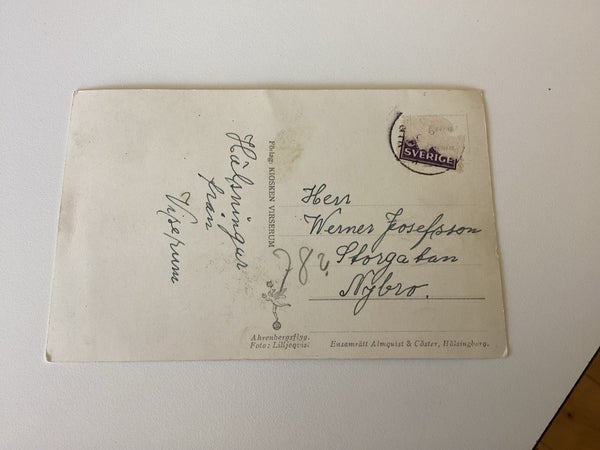 Hälsningar
från
Viserum
Förlag: KIOSKEN VIRSERUM
SVERIGE
Herr
Werner Josefsson
Storgatan
Nybro.
Ahrenbergsflyg.
Foto: Lilljeqvist
Ensamrätt Almquist & Cöster, Hälsingborg.